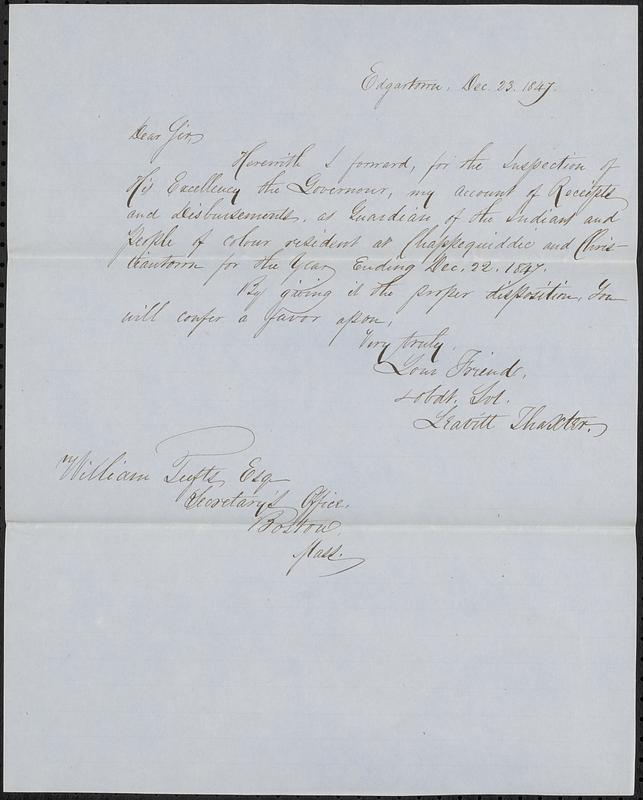 Edgartown, Dec. 23. 1847.
Dear Sir,
Herewith I forward, for the Inspection of
His Excellency the Governour, my account of Receipts
and Disbursements, as Guardian of the Indians and
People of colour resident at Chappequiddic and Chris-
tiantown for the Year Ending Dec. 22. 1847.
By giving it the proper disposition, You
will confer a favor upon,
Very truly,
Your Friend,
& obdt. Svt.
Leavitt Thaxter.
William Tufts, Esq
Secretary's Office,
Boston,
Mass.